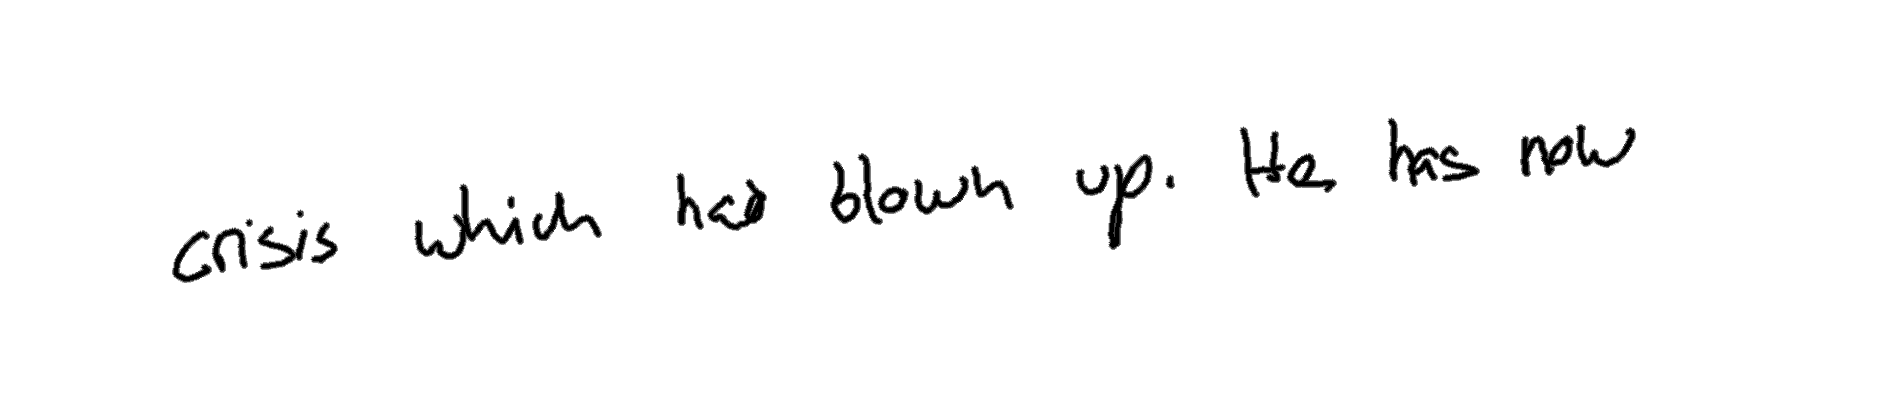 crisis which had blown up. He has now